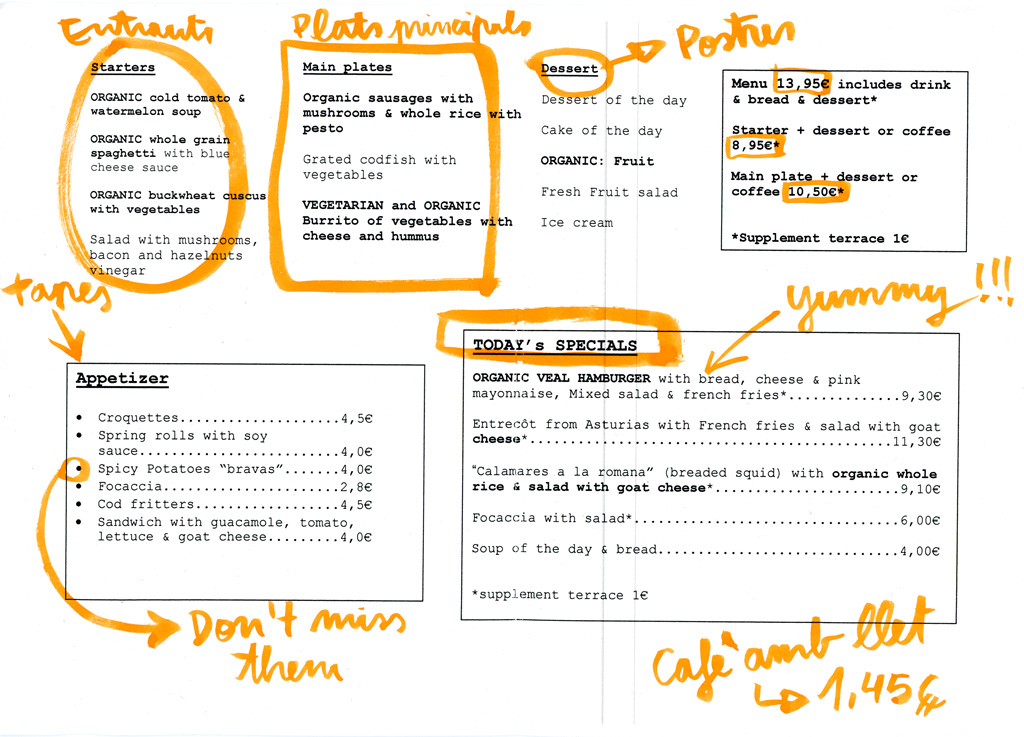 Entrants
Starters
ORGANIC cold tomato &
watermelon soup
ORGANIC whole grain
spaghetti with blue
cheese sauce
ORGANIC buckwheat cuscus
with vegetables
Salad with mushrooms,
bacon and hazelnuts
vinegar
Plats principals
Main plates
Organic sausages with
mushrooms & whole rice with
pesto
Grated codfish with
vegetables
VEGETARIAN and ORGANIC
Burrito of vegetables with
cheese and hummus
Postres
Dessert
Dessert of the day
Cake of the day
ORGANIC: Fruit
Fresh Fruit salad
Ice cream
Menu 13,95€ includes drink
& bread & dessert*
Starter + dessert or coffee
8,95€*
Main plate + dessert or
coffee 10,50€*
*Supplement terrace 1€
tapes
Appetizer
• Croquettes....................4,5€
• Spring rolls with soy
sauce.........................4,0€
• Spicy Potatoes “bravas”.......4,0€
• Focaccia......................2,8€
• Cod fritters..................4,5€
• Sandwich with guacamole, tomato,
lettuce & goat cheese.........4,0€
Don't miss
them
yummy!!!
TODAY's SPECIALS
ORGANIC VEAL HAMBURGER with bread, cheese & pink
mayonnaise, Mixed salad & french fries*..............9,30€
Entrecôt from Asturias with French fries & salad with goat
cheese*.............................................11,30€
“Calamares a la romana” (breaded squid) with organic whole
rice & salad with goat cheese*.......................9,10€
Focaccia with salad*.................................6,00€
Soup of the day & bread..............................4,00€
*supplement terrace 1€
Cafè amb llet
1,45€